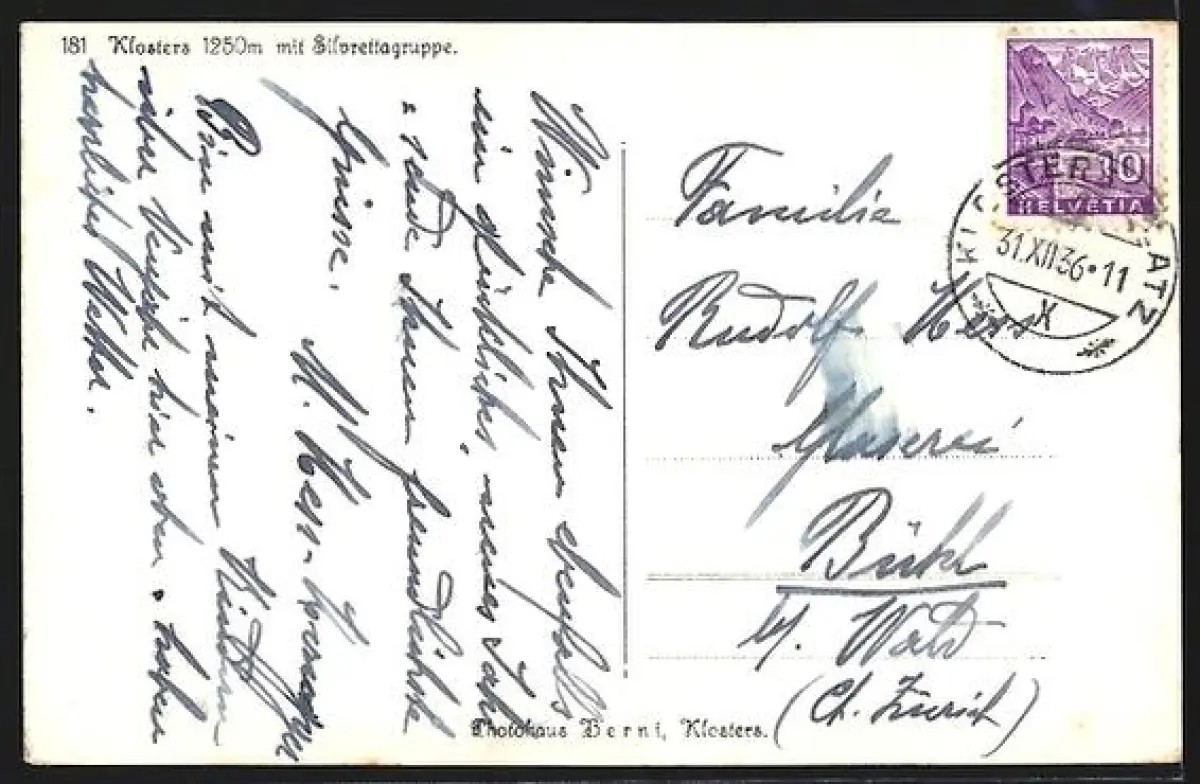 181 Klosters 1250m mit Silvrettagruppe.
HELVETIA
10
KLOSTERS PLATZ
31.XII.36·11
X
Wünsche Ihnen ebenfalls
ein glückliches neues Jahr
u. sende Ihnen freundlichste
Grüsse.
Bin mit meinen Kindern
über Neujahr hier oben, haben
herrliches Wetter.
Familie
Rudolf
Glaserei
Bühl
b/. Wald
(Ct. Zürich)
Photohaus Berni, Klosters.